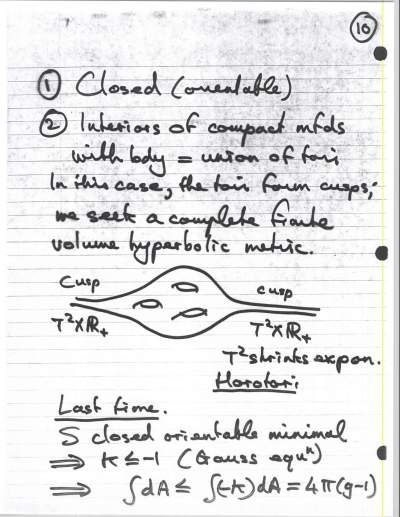 10
① Closed (orientable)
② Interiors of compact mfds
with body = union of tori
In this case, the tori form cusps;
we seek a complete finite
volume hyperbolic metric.
Cusp
cusp
T²×ℝ₊
T²×ℝ₊
T² shrinks expon.
Horotori
Last time.
S closed orientable minimal
⟹ K ≤ -1 (Gauss equⁿ)
⟹ ∫dA ≤ ∫(-K)dA = 4π(g-1)